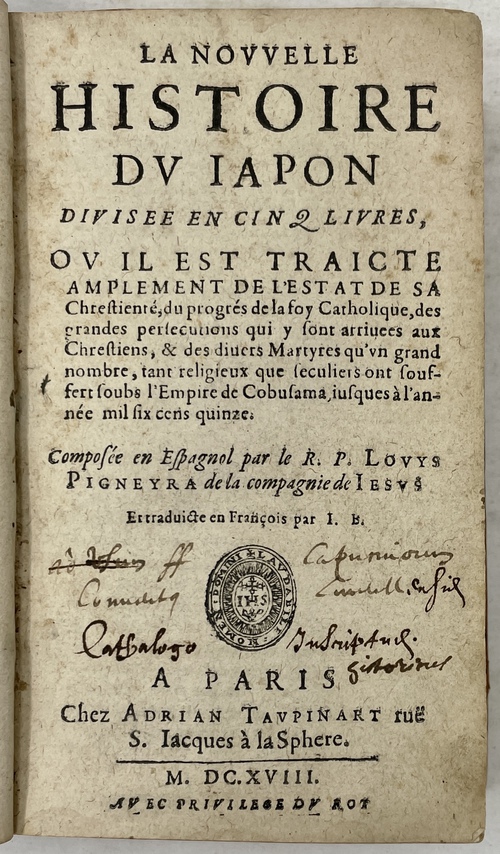 LA NOVVELLE
HISTOIRE
DV IAPON
DIVISEE EN CINQ LIVRES,
OV IL EST TRAICTE
AMPLEMENT DE L'ESTAT DE SA
Chrestienté, du progrés de la foy Catholique, des
grandes persecutions qui y sont arriuees aux
Chrestiens, & des diuers Martyres qu'vn grand
nombre, tant religieux que seculiers ont souf-
fert soubs l'Empire de Cobusama, iusques à l'an-
née mil six cens quinze.
Composée en Espagnol par le R. P. LOVYS
PIGNEYRA de la compagnie de IESVS
Et traduicte en François par I. B.
ff Capucinorum
Conuentus
NOMEN DOMINI LAVDABILE
IHS
Cathalogo Inscriptus
historicus
A PARIS
Chez ADRIAN TAVPINART ruë
S. Iacques à la Sphere.
M. DC. XVIII.
AVEC PRIVILEGE DV ROY